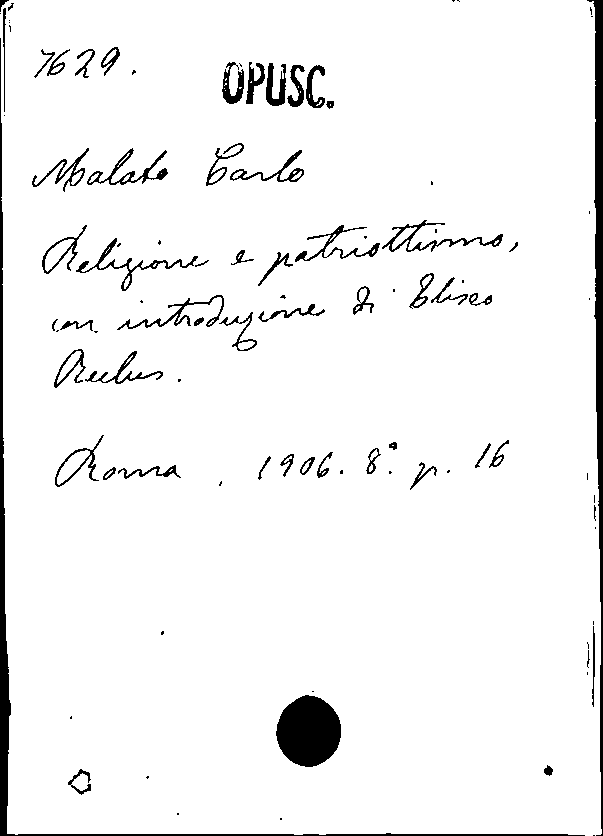 7629.
OPUSC.
Malato Carlo
Religione e patriottismo,
con introduzione di Eliseo
Reclus.
Roma, 1906. 8.° p. 16